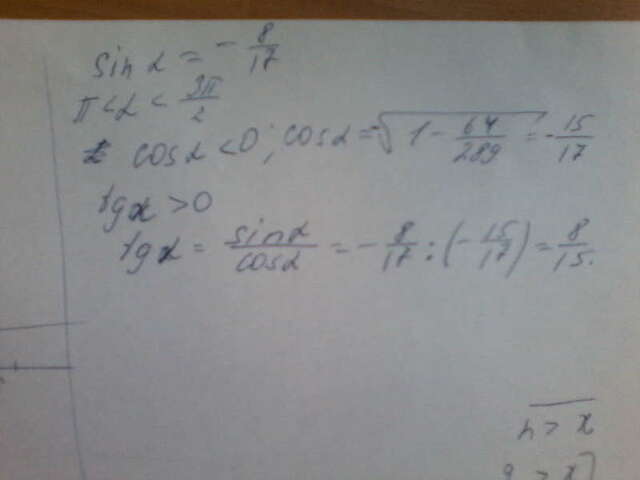 sin α = - 8/17
π < α < 3π/2
cos α < 0; cos α = -√(1 - 64/289) = - 15/17
tg α > 0
tg α = sin α / cos α = - 8/17 : (- 15/17) = 8/15.
n > x